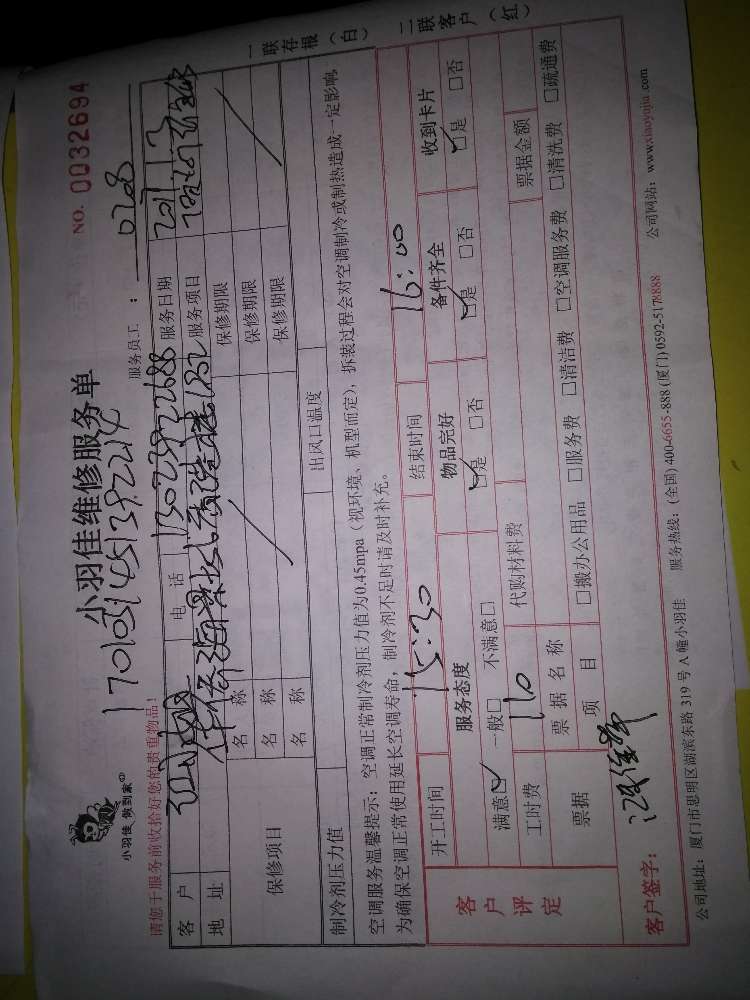 小羽佳 做到家
小羽佳维修服务单
NO. 0032694
1701031451392214
服务员工： 0768
请您于服务前收拾好您的贵重物品！
客户 电话 13023922688 服务日期
地址 服务项目
保修项目 名称 保修期限
名称 保修期限
名称 保修期限
制冷剂压力值 出风口温度
空调服务温馨提示：空调正常制冷剂压力值为0.45mpa（视环境、机型而定），拆装过程会对空调制冷或制热造成一定影响，
为确保空调正常使用延长空调寿命，制冷剂不足时请及时补充。
一联存根（白） 二联客户（红）
客户评定
开工时间 15:30 结束时间 16:00
服务态度 物品完好 备件齐全 收到卡片
满意☑ 一般□ 不满意□ ☑是 □否 ☑是 □否 ☑是 □否
工时费 110 代购材料费 票据金额
票据 票据名称
项目 □搬办公用品 □服务费 □清洁费 □空调服务费 □清洗费 □疏通费
客户签字：
公司地址：厦门市思明区湖滨东路 319 号 A 幢小羽佳 服务热线：(全国) 400-6655-888 (厦门) 0592-5178888 公司网站：www.xiaoyujia.com